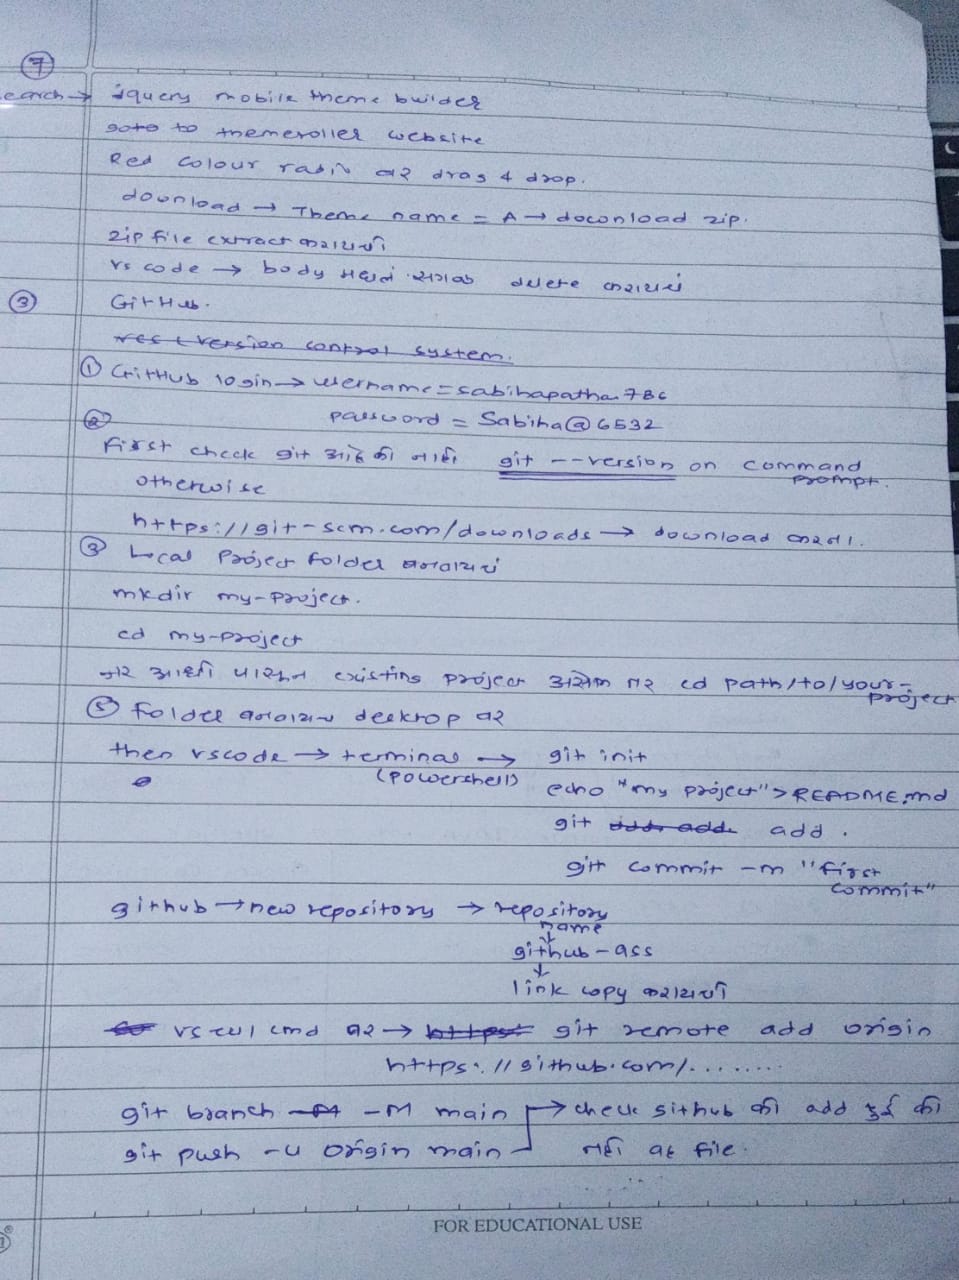 7
earch → jquery mobile theme builder
goto to themeroller website
Red colour radio वर drag & drop.
download → Theme name = A → download zip.
zip file extract करायची
vs code → body मधलं सगळं delete करायचं
3 GitHub.
version control system.
1 GitHub login → username = sabihapathan786
password = Sabiha@6532
2
First check git आहे की नाही git --version on command prompt.
otherwise
https://git-scm.com/downloads → download करना.
3 Local Project folder बनवायचं
mkdir my-project.
cd my-project
जर आधी पासून existing project असेल तर cd path/to/your-project
5 Folder बनवायचं desktop वर
then vscode → terminal → git init
(powershell) echo "my project" > README.md
git add .
git commit -m "first commit"
github → new repository → repository name
↓
github-ass
↓
link copy करायची
vs cmd वर → git remote add origin
https://github.com/........
git branch -M main → check github की add हुई की
git push -u origin main नही वह file.
FOR EDUCATIONAL USE